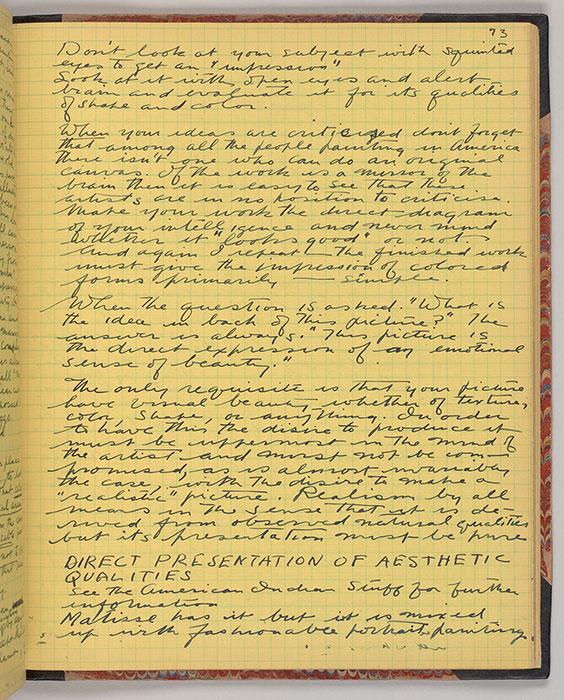 73
Don't look at your subject with squinted
eyes to get an "impression"
Look at it with open eyes and alert
brain and evaluate it for its qualities
of shape and color.
When your ideas are criticized don't forget
that among all the people painting in America
there isn't one who can do an original
canvas. If the work is a mirror of the
brain then it is easy to see that these
artists are in no position to criticise
Make your work the direct diagram
of your intelligence and never mind
whether it "looks good" or not
And again I repeat — the finished work
must give the impression of colored
forms primarily — simple.
When the question is asked. "What is
the idea in back of this picture?" The
answer is always. "This picture is
the direct expression of an emotional
sense of beauty."
The only requisite is that your picture
have visual beauty whether of texture,
color, shape, or anything. In order
to have this, the desire to produce it
must be uppermost in the mind of
the artist and must not be com-
promised, as is almost invariably
the case, with the desire to make a
"realistic" picture. Realism by all
means in the sense that it is de-
rived from observed natural qualities
but its presentation must be pure
DIRECT PRESENTATION OF AESTHETIC
QUALITIES
See the American Indian Stuff for further
information
Matisse has it but it is mixed
up with fashionable portrait painting.